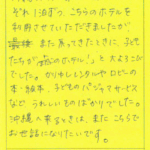 それぞれ1泊ずつ、こちらのホテルを
利用させていただきましたが
また戻ってきたときに、子ど
もたちが「のホテル！」と大よろこび
でした。かりゆしレンタルやロビーの
本・絵本、子どものパジャマサービス
など うれしいものばかりでした。
沖縄へ来るときは、また こちらで
お世話になりたいです。